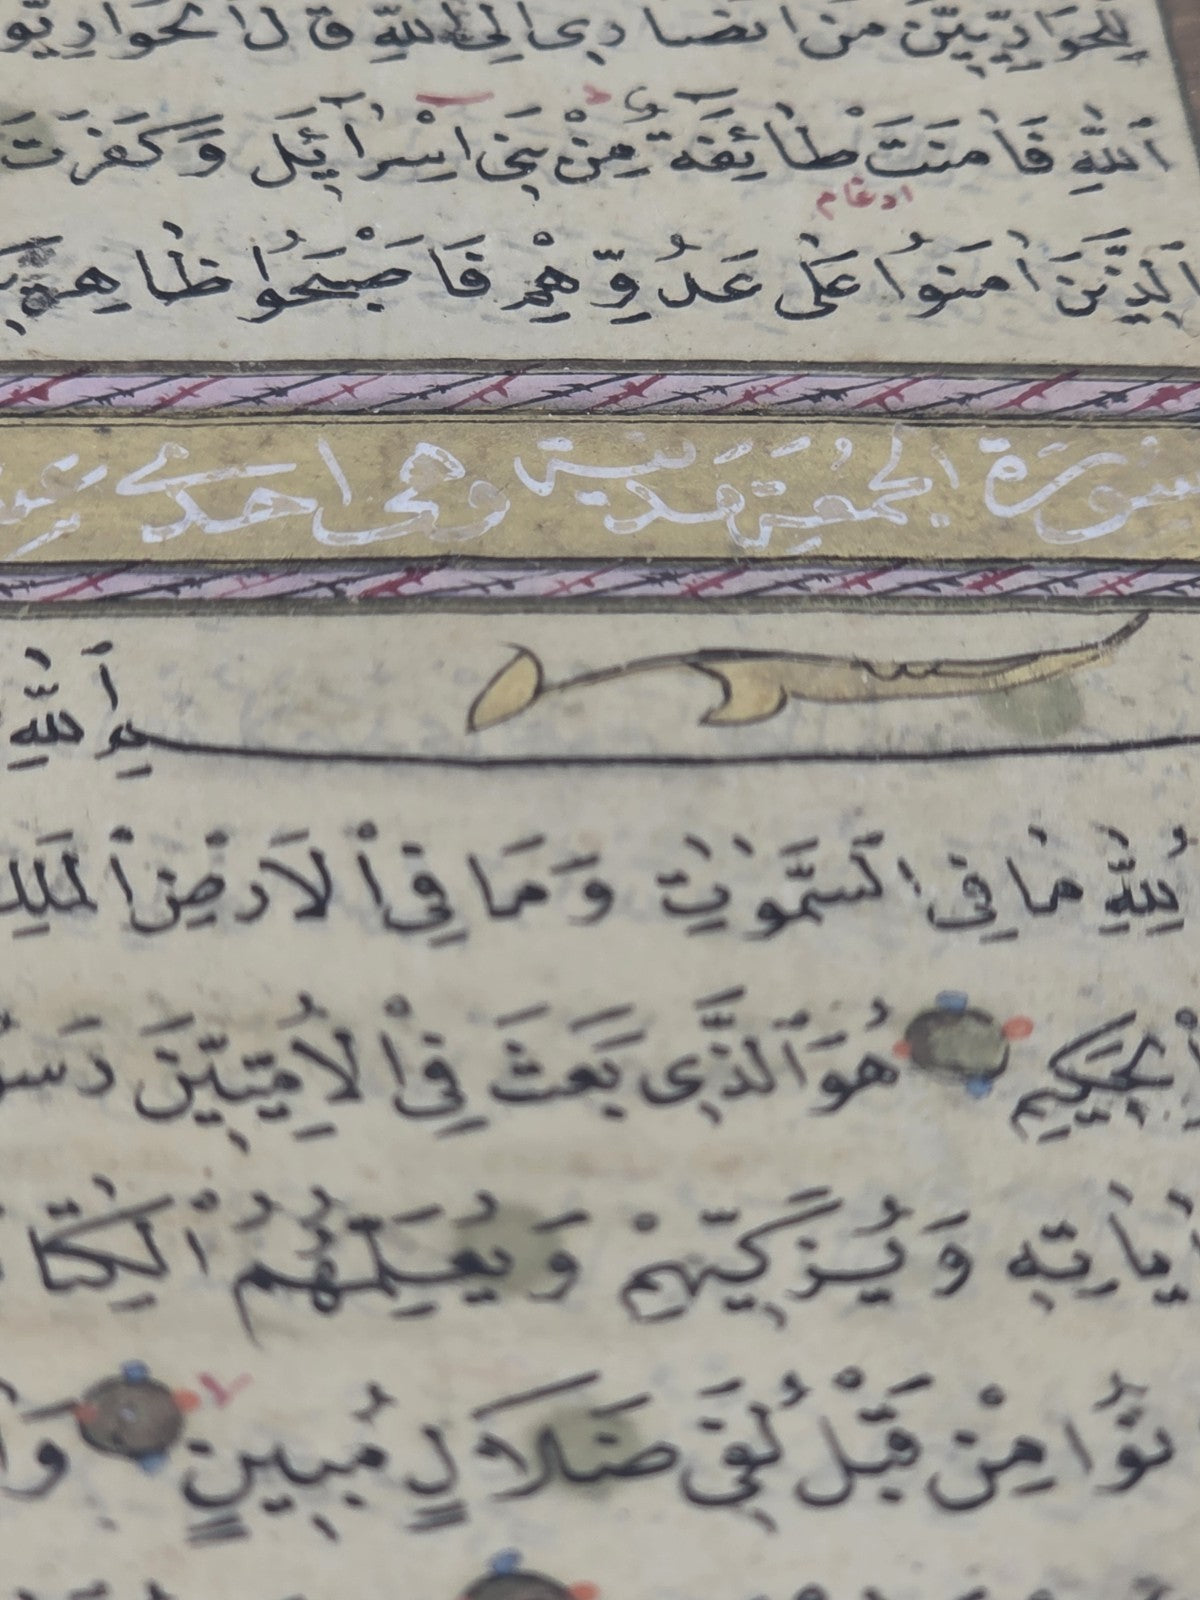 لِلْحَوَارِيِّينَ مَنْ اَنْصَارِى اِلَى اللّٰهِ قَالَ الْحَوَارِيُّو
اللّٰهِ فَاٰمَنَتْ طَائِفَةٌ مِنْ بَنِى اِسْرَائِلَ وَكَفَرَتْ
ادغام
الَّذِينَ اٰمَنُوا عَلٰى عَدُوِّهِمْ فَاَصْبَحُوا ظَاهِرِيـ
سورة الجمعة مدنية وهى احدى عشر
بِسْمِ اللّٰهِ
لِلّٰهِ مَا فِى السَّمٰوَاتِ وَمَا فِى الْاَرْضِ الْمَلِكِ
الْحَكِيمِ هُوَ الَّذِى بَعَثَ فِى الْاُمِّيِّينَ رَسُو
اٰيَاتِهِ وَيُزَكِّيهِمْ وَيُعَلِّمُهُمُ الْكِتَا
نُوا مِنْ قَبْلُ لَفِى ضَلَالٍ مُبِينٍ وَاٰ